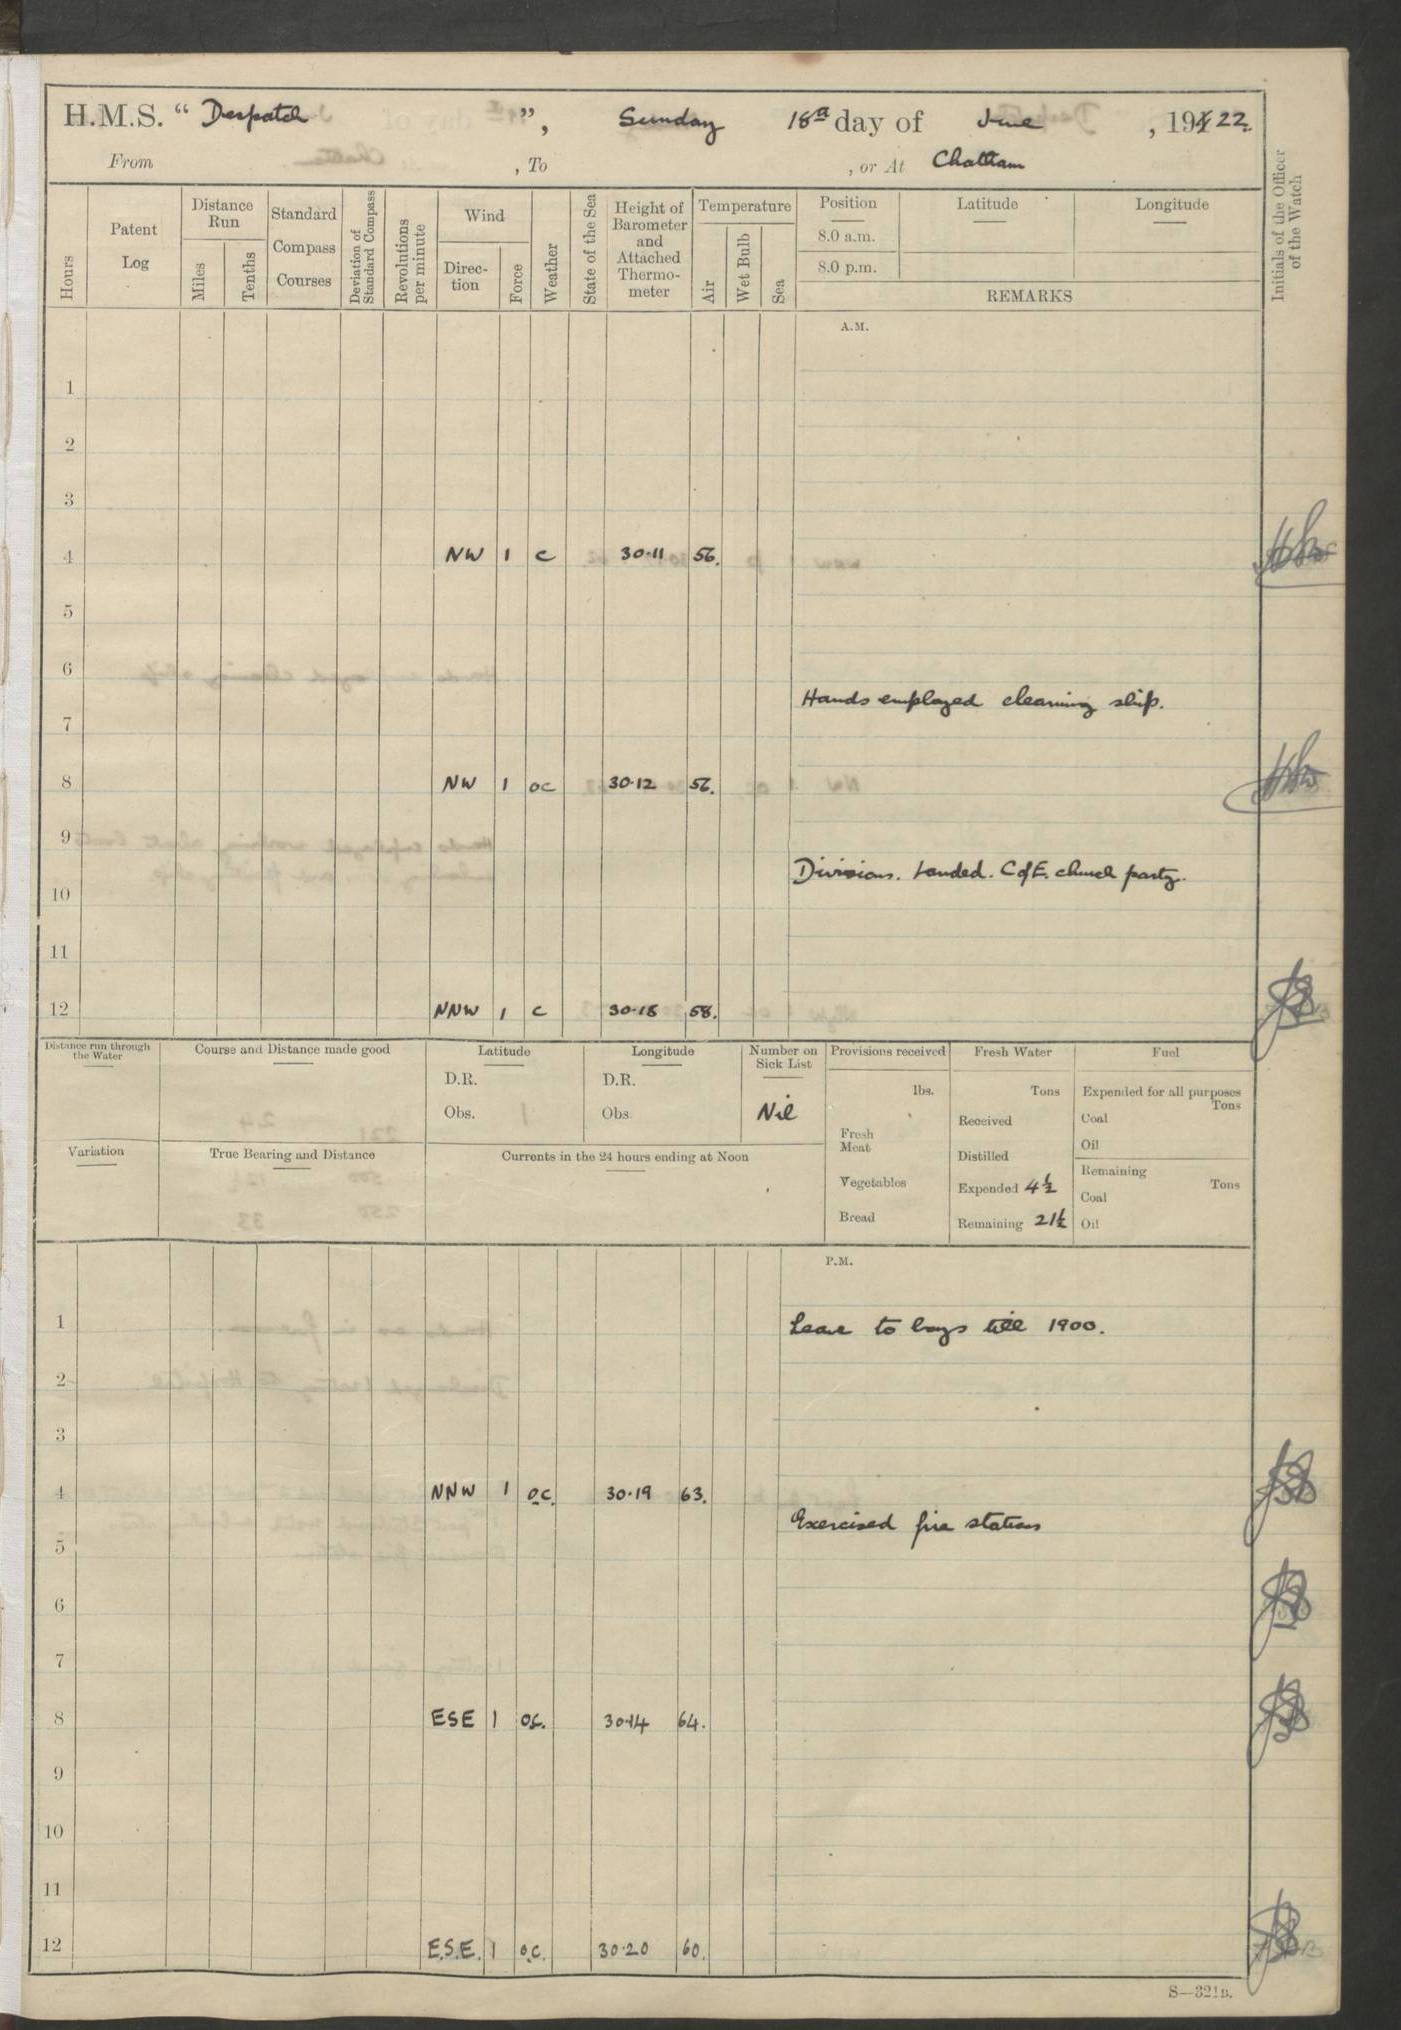 H.M.S. “ Despatch ”, Sunday 18th day of June , 191 22.
From , To , or At Chatham
Hours
Patent Log
Distance Run
Miles
Tenths
Standard Compass Courses
Deviation of Standard Compass
Revolutions per minute
Wind
Direc-tion
Force
Weather
State of the Sea
Height of Barometer and Attached Thermo-meter
Temperature
Air
Wet Bulb
Sea
Position Latitude Longitude
8.0 a.m.
8.0 p.m.
REMARKS
Initials of the Officer of the Watch
A.M.
1
2
3
4 NW 1 c 30·11 56.
5
6
Hands employed cleaning ship.
7
8 NW 1 oc 30·12 56.
9
Divisions. Landed. C of E. church party.
10
11
12 NNW 1 c 30·18 58.
Distance run through the Water
Course and Distance made good
Latitude
D.R.
Obs.
Longitude
D.R.
Obs.
Number on Sick List
Nil
Provisions received
lbs.
Fresh Meat
Vegetables
Bread
Fresh Water
Tons
Received
Distilled
Expended 4½
Remaining 21½
Fuel
Expended for all purposes
Tons
Coal
Oil
Remaining
Tons
Coal
Oil
Variation
True Bearing and Distance
Currents in the 24 hours ending at Noon
P.M.
1 Leave to boys till 1900.
2
3
4 NNW 1 o.c. 30·19 63.
Exercised fire stations
5
6
7
8 ESE 1 o.c. 30·14 64.
9
10
11
12 E.S.E. 1 o.c. 30·20 60.
S—321B.